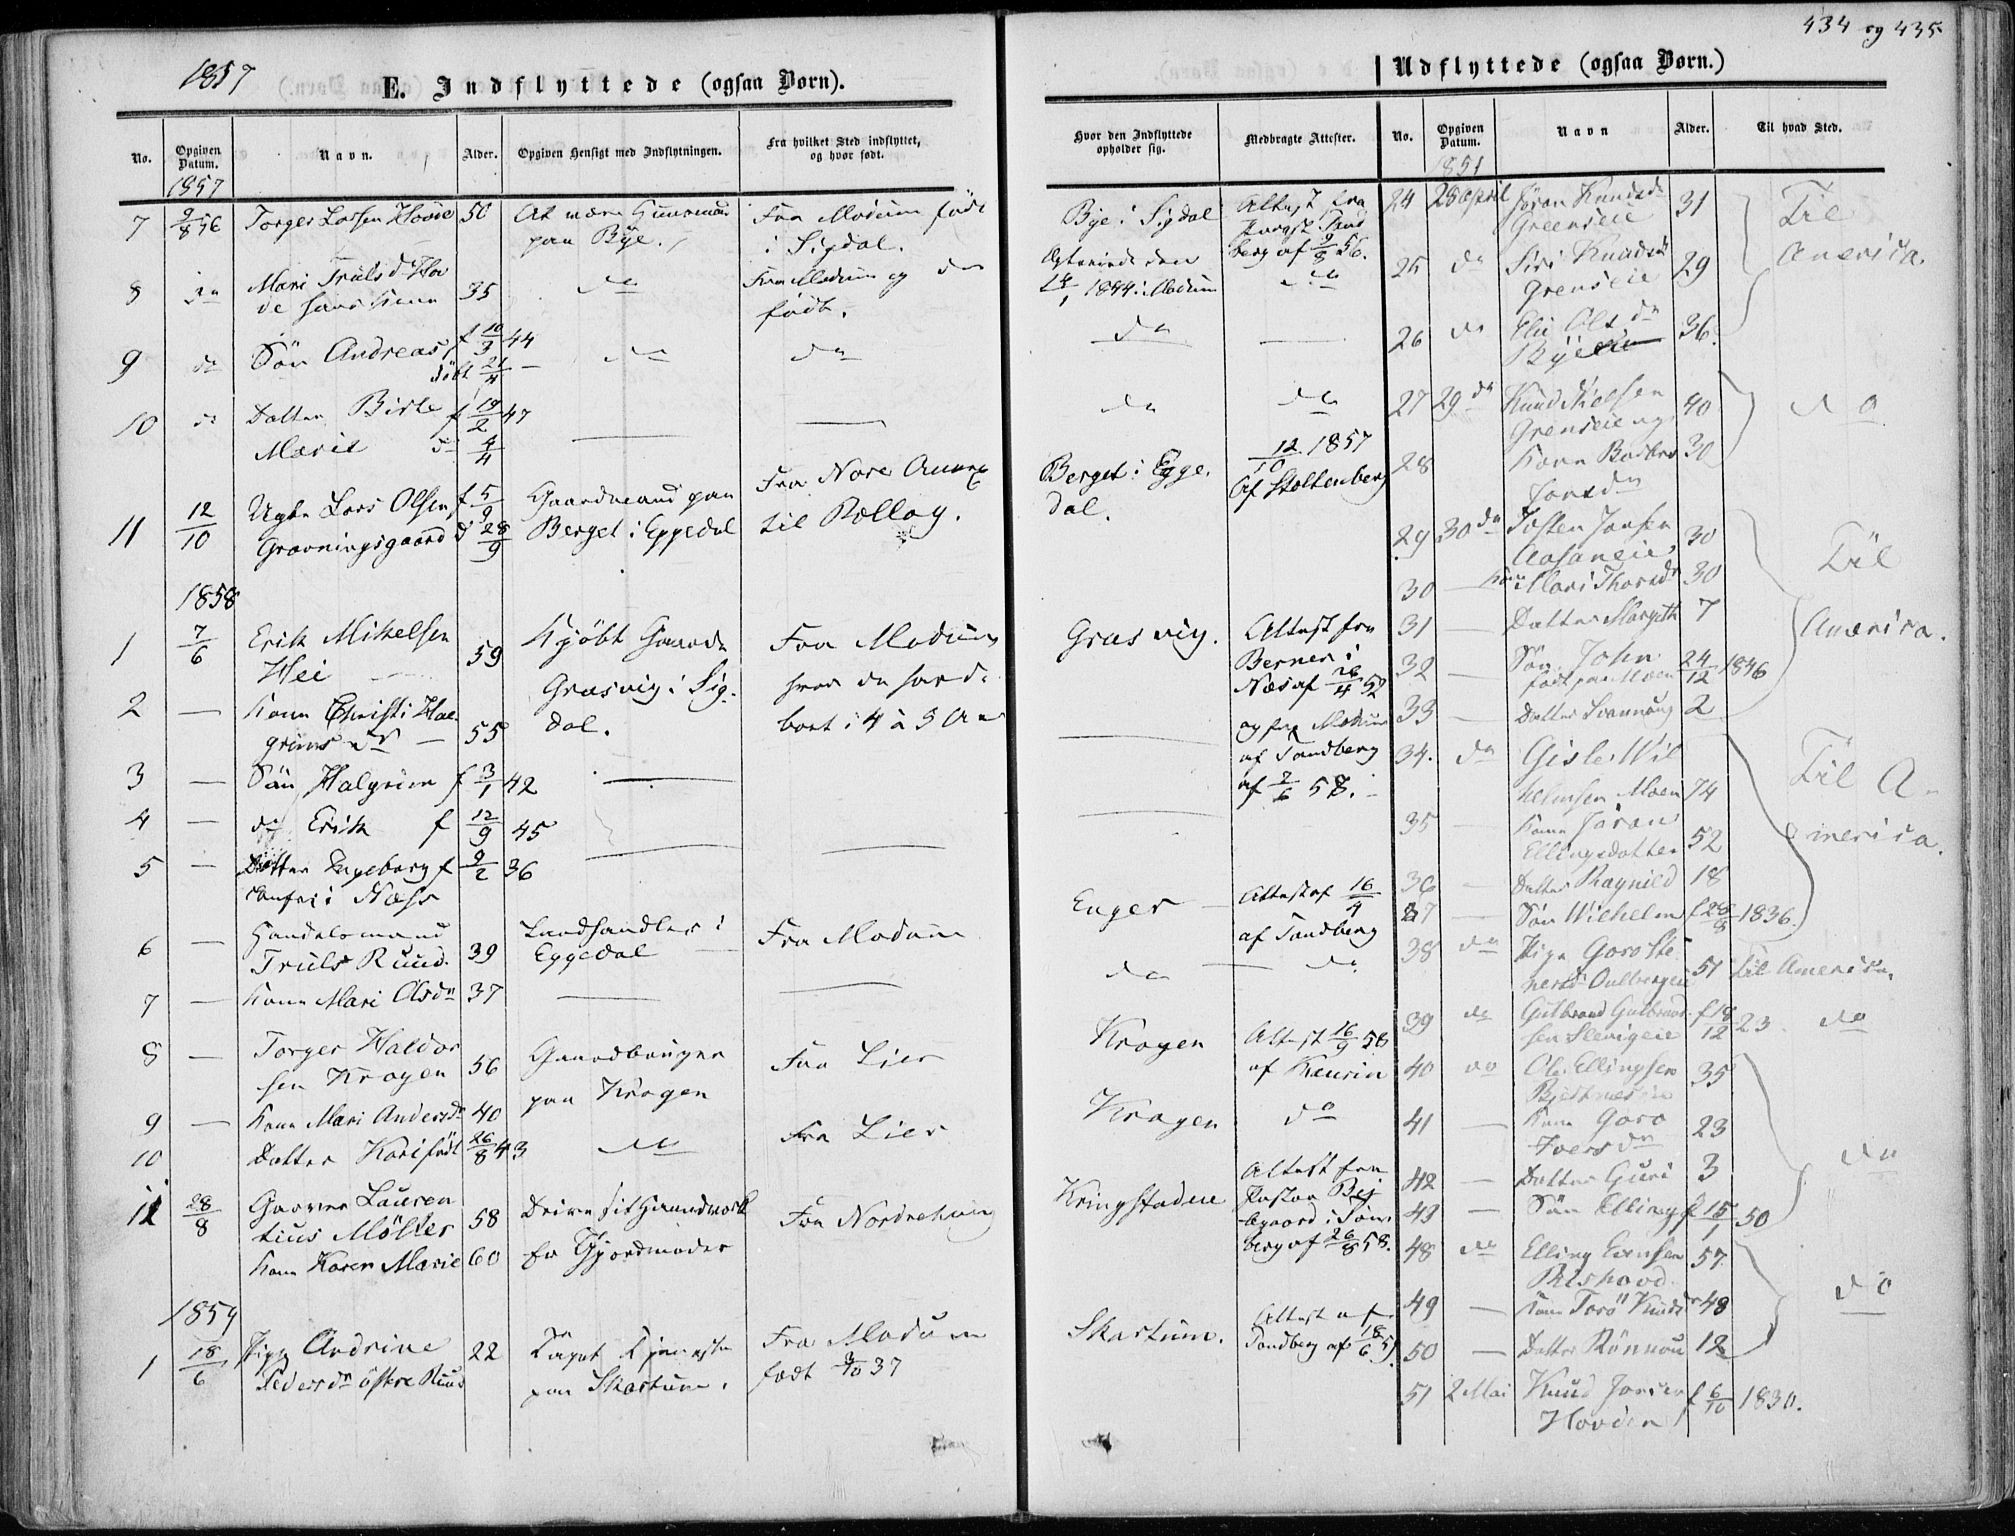 434 og 435
1857
E. Indflyttede (ogsaa Børn).
No.
Opgiven Datum.
Navn.
Alder.
Opgiven Hensigt med Indflytningen.
Fra hvilket Sted indflyttet, og hvor født.
1857
7 9/8 56 Torger Larsen Hovde 50 At være Huusmand Fra Modum født
paa Bye. i Sigdal.
8 do Mari Trulsd Hov
de hans Kone 35 do Fra Modum og
født.
9 do Søn Andreas f 10/3 44 do do
døbt 21/4
10 do Datter Birte f 19/2 47
Marie d 4/4
11 12/10 Ugte Lars Olsen f 5/9 Gaardmand paa Fra Nore Annex
Gravningsgaard d 28/9 Berget i Eggedal til Rollag.
1858
1 7/6 Erik Mikelsen 59 Kjøbt Gaarde Fra Modum
Hei Græsvig i Sig-
2 — Kone Christi Hal-
grimsdr 55 dal. boet i 4 à 5 Aar
3 — Søn Halgrim f 3/1 42
4 — do Erik f 12/9 45
5 — Datter Ingeborg f 9/2 36
i Næss
6 — Handelsmand Landhandler i
Truls Ruud. 39 Eggedal Fra Modum
7 — Kone Mari Olsdr 37
8 — Torger Haldor
sen Kragen 56 Gaardbruger Fra Lier
paa Kragen
9 — Kone Mari Andersdr 40
10 Datter Kari født 26/8 43 do Fra Lier
11 28/8 Garver Lauren
tius Møller 58 Drive sit Haandverk Fra Norderhoug
Kone Karen Marie 60 for Gjordemoder
1859
1 18/6 Pige Andrine 22 Taget Tjeneste Fra Modum
Pedersdr østre Ruud paa Skartum. født 9/10 37
Hvor den Indflyttede opholder sig.
Medbragte Attester.
Bye i Sigdal Attest fra
Sand
berg af 9/8 56.
1844 i Modum do
do
do do
Berget i Egge- 12/10 1857
dal. Af Stoltenberg
Græsvig. Attest fra
Berner i
Næs af 26/4 52
og fra Modum
af Sandberg
af 7/6 58.
Enger Attest af 16/4
af Sandberg
do do
Kragen Attest 16/9 58
af Keurin
Kragen do
Kringstadeie Attest fra
Pastor Bej
egaard i Tøns
berg af 26/8 58.
Skartum. Attest af
Sandberg af 18/6 59
Udflyttede (ogsaa Børn.)
No.
Opgiven Datum.
Navn
Alder.
Til hvad Sted.
1851
24 28 April Jøran Knudsdr 31 Til
Greenseie America.
25 do Siri Knudsdr
Grenseie 29
26 do Eli Olsdr 36.
Byeeie
27 29 do Knud Nielsen 40 do
Grenseie og
28 Kone Barbro 30
Jonsdr
29 30 do Josten Jonsen 30 Til
Aasaneie America.
30 — Kone Mari Thorsdr 30
31 — Datter Margith 7
32 — Søn John 24/12 1846
født paa Moen
33 — Datter Svannaug 2
34. do Gisle Wil
helmsen Moen 74 Til A-
merica.
35 — Kone Jøran
Ellingsdatter 52
36 — Datter Ragnild 18
37 — Søn Wilhelm f 28/8 1836.
38 do Pige Goro Ste
nersdr 51 Til America.
39 do Gulbrand Gulbrand- f 18/12 23 do
sen Slevigeie
40 do Ole Ellingsen 35
41 — Kone Goro
Iversdr 23
42 — Datter Guri 3 do
43 — Søn Elling f 15/1 50
48 do Elling Evensen 57
49 — Kone Torø Knudsdr 48 do
50 — Datter Rønnau 12
51 2 Mai Knud Jonsen f 6/10 1830.
Hovden